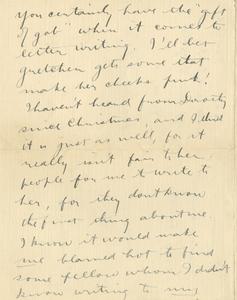 you certainly have the "gift
of gab" when it comes to
letter writing. I'll bet
Gretchen gets some that
make her cheeks pink!
I haven't heard from Dorothy
since Christmas, and I think
it is just as well, for it
really isn't fair to her
people for me to write to
her, for they don't know
the first thing about me.
I know it would make
me blamed hot to find
some fellow whom I didn't
know writing to my